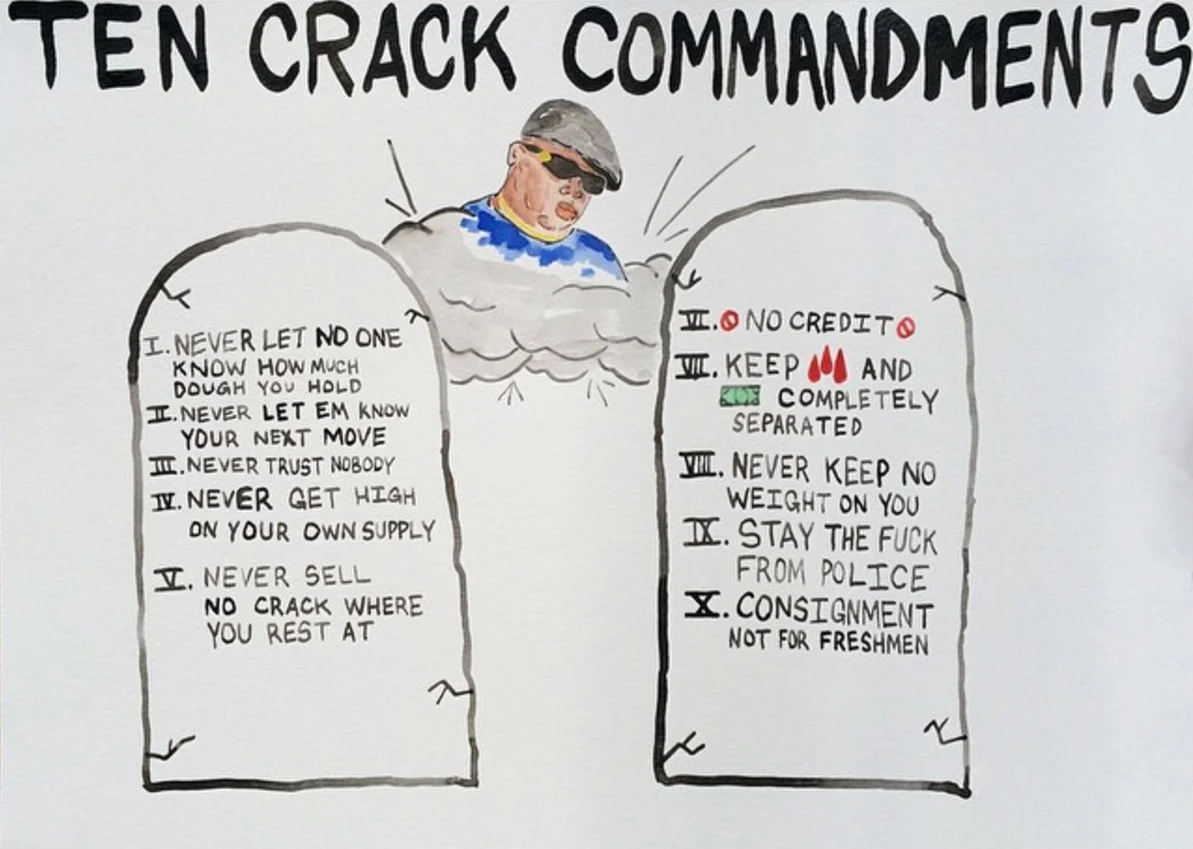 TEN CRACK COMMANDMENTS
I. NEVER LET NO ONE
KNOW HOW MUCH
DOUGH YOU HOLD
II. NEVER LET EM KNOW
YOUR NEXT MOVE
III. NEVER TRUST NOBODY
IV. NEVER GET HIGH
ON YOUR OWN SUPPLY
V. NEVER SELL
NO CRACK WHERE
YOU REST AT
VI. NO CREDIT
VII. KEEP AND
COMPLETELY
SEPARATED
VIII. NEVER KEEP NO
WEIGHT ON YOU
IX. STAY THE FUCK
FROM POLICE
X. CONSIGNMENT
NOT FOR FRESHMEN